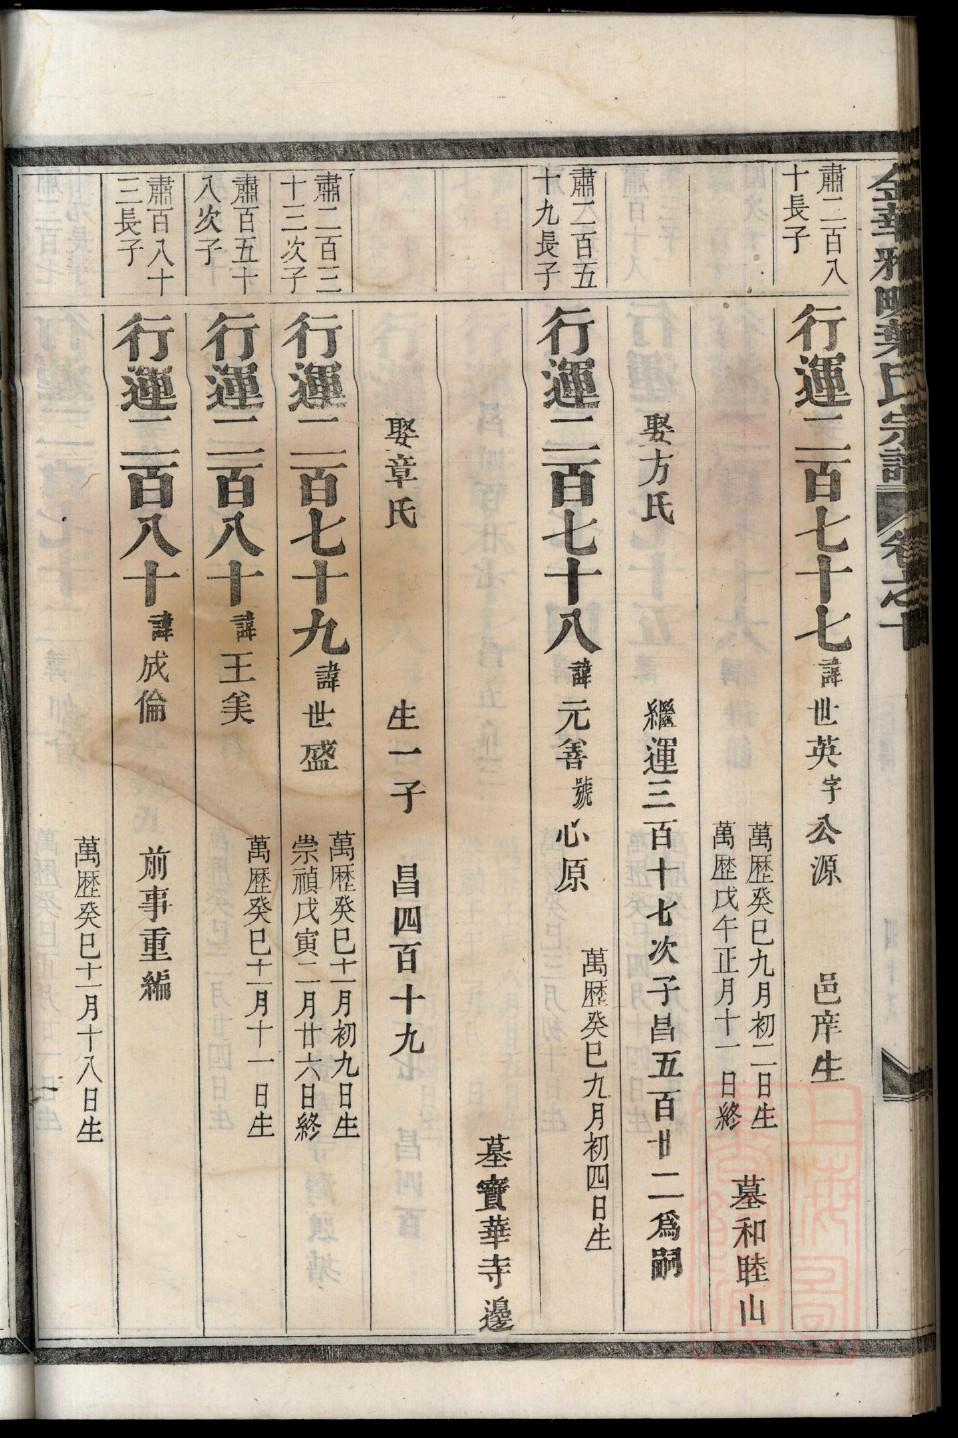 金華雅畈葉氏宗譜 卷之十
肅二百八
十長子
行運二百七十七 諱世英字公源 邑庠生
萬歷癸巳九月初二日生
萬歷戊午正月十一日終
墓和睦山
娶方氏 繼運三百十七次子昌五百廿二為嗣
肅二百五
十九長子
行運二百七十八 諱元善號心原
萬歷癸巳九月初四日生
墓寶華寺邊
娶章氏 生一子 昌四百十九
肅二百三
十三次子
行運二百七十九 諱世盛
萬歷癸巳十一月初九日生
崇禎戊寅二月廿六日終
肅百五十
八次子
行運二百八十 諱王美
萬歷癸巳十一月十一日生
肅百八十
三長子
行運二百八十 諱成倫
前事重編
萬歷癸巳十一月十八日生